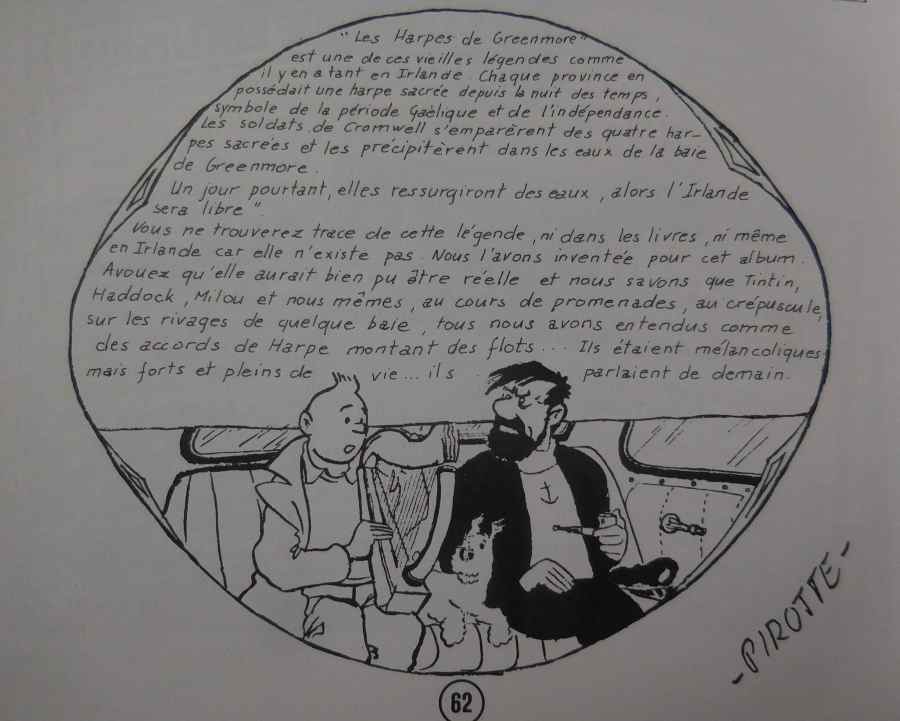 "Les Harpes de Greenmore"
est une de ces vieilles légendes comme
il y en a tant en Irlande. Chaque province en
possédait une harpe sacrée depuis la nuit des temps,
symbole de la période Gaèlique et de l'indépendance.
Les soldats de Cromwell s'emparèrent des quatre har-
pes sacrées et les précipitèrent dans les eaux de la baie
de Greenmore.
Un jour pourtant, elles ressurgiront des eaux, alors l'Irlande
sera libre".
Vous ne trouverez trace de cette légende, ni dans les livres, ni même
en Irlande car elle n'existe pas. Nous l'avons inventée pour cet album.
Avouez qu'elle aurait bien pu être réelle et nous savons que Tintin,
Haddock, Milou et nous mêmes, au cours de promenades, au crépuscule,
sur les rivages de quelque baie, tous nous avons entendus comme
des accords de Harpe montant des flots... Ils étaient mélancoliques
mais forts et pleins de vie... ils parlaient de demain.
-PIROTTE-
62